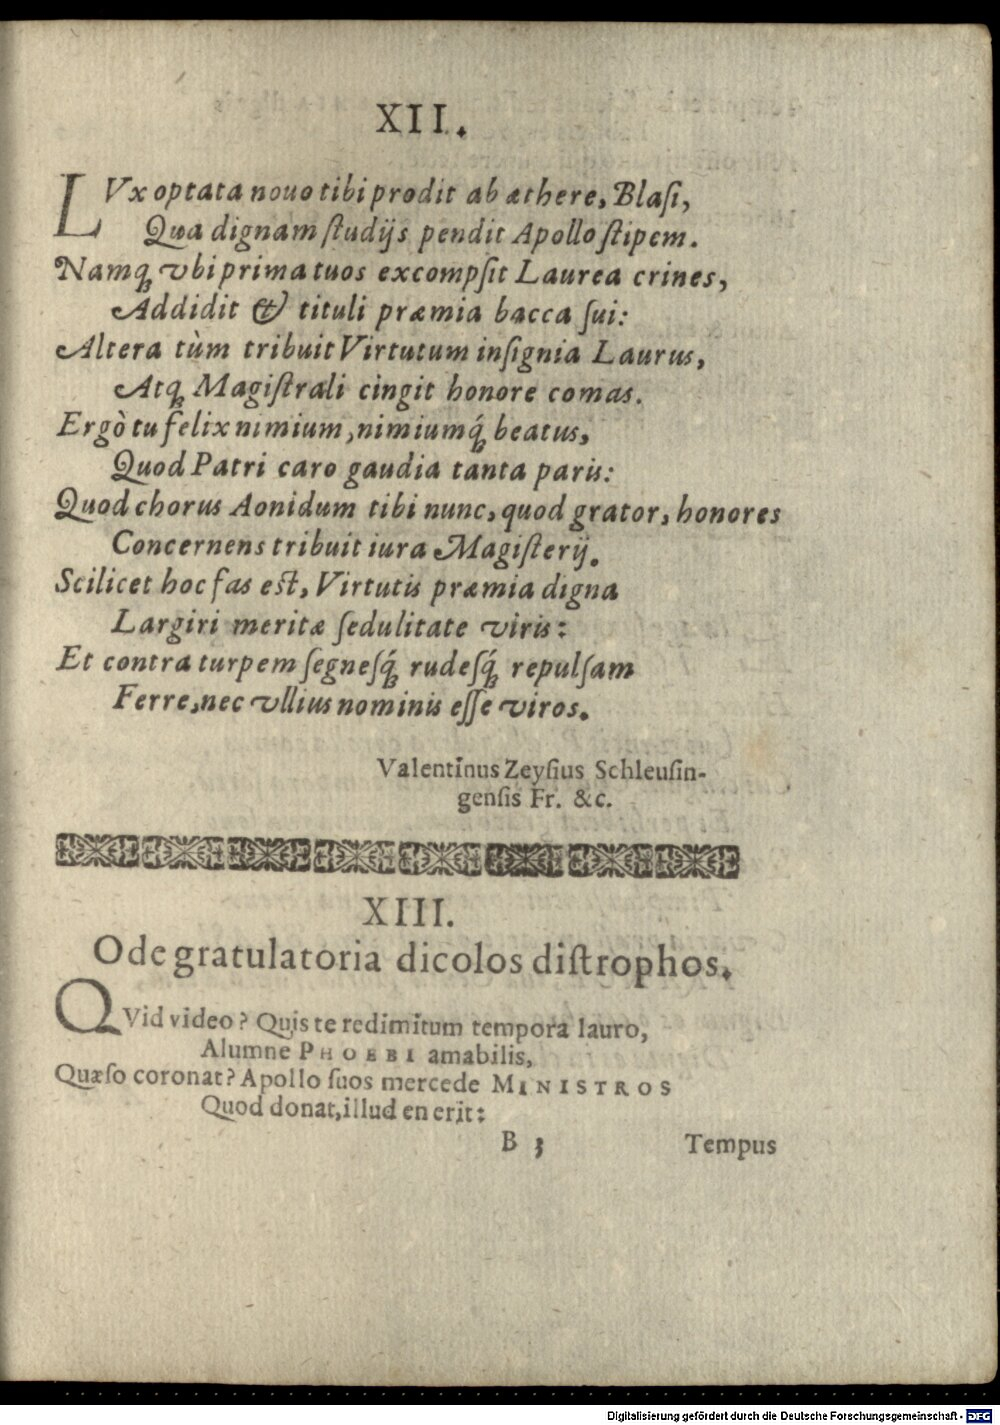 XII.
LVx optata nouo tibi prodit ab æthere, Blaſi,
Qua dignam ſtudijs pendit Apollo ſtipem.
Namq́; vbi prima tuos excompſit Laurea crines,
Addidit & tituli præmia bacca ſui:
Altera tùm tribuit Virtutum inſignia Laurus,
Atq; Magiſtrali cingit honore comas.
Ergò tu felix nimium, nimiumq́; beatus,
Quod Patri caro gaudia tanta paris:
Quod chorus Aonidum tibi nunc, quod grator, honores
Concernens tribuit iura Magiſterij.
Scilicet hoc fas eſt, Virtutis præmia digna
Largiri meritæ ſedulitate viris:
Et contra turpem ſegneſq́; rudeſq́; repulſam
Ferre, nec vllius nominis eſſe viros.
Valentinus Zeyſius Schleuſin-
genſis Fr. &c.
XIII.
Ode gratulatoria dicolos diſtrophos.
QVid video? Quis te redimitum tempora lauro,
Alumne PHOEBI amabilis,
Quæſo coronat? Apollo ſuos mercede MINISTROS
Quod donat, illud en erit:
B 3 Tempus
Digitalisierung gefördert durch die Deutsche Forschungsgemeinschaft - DFG